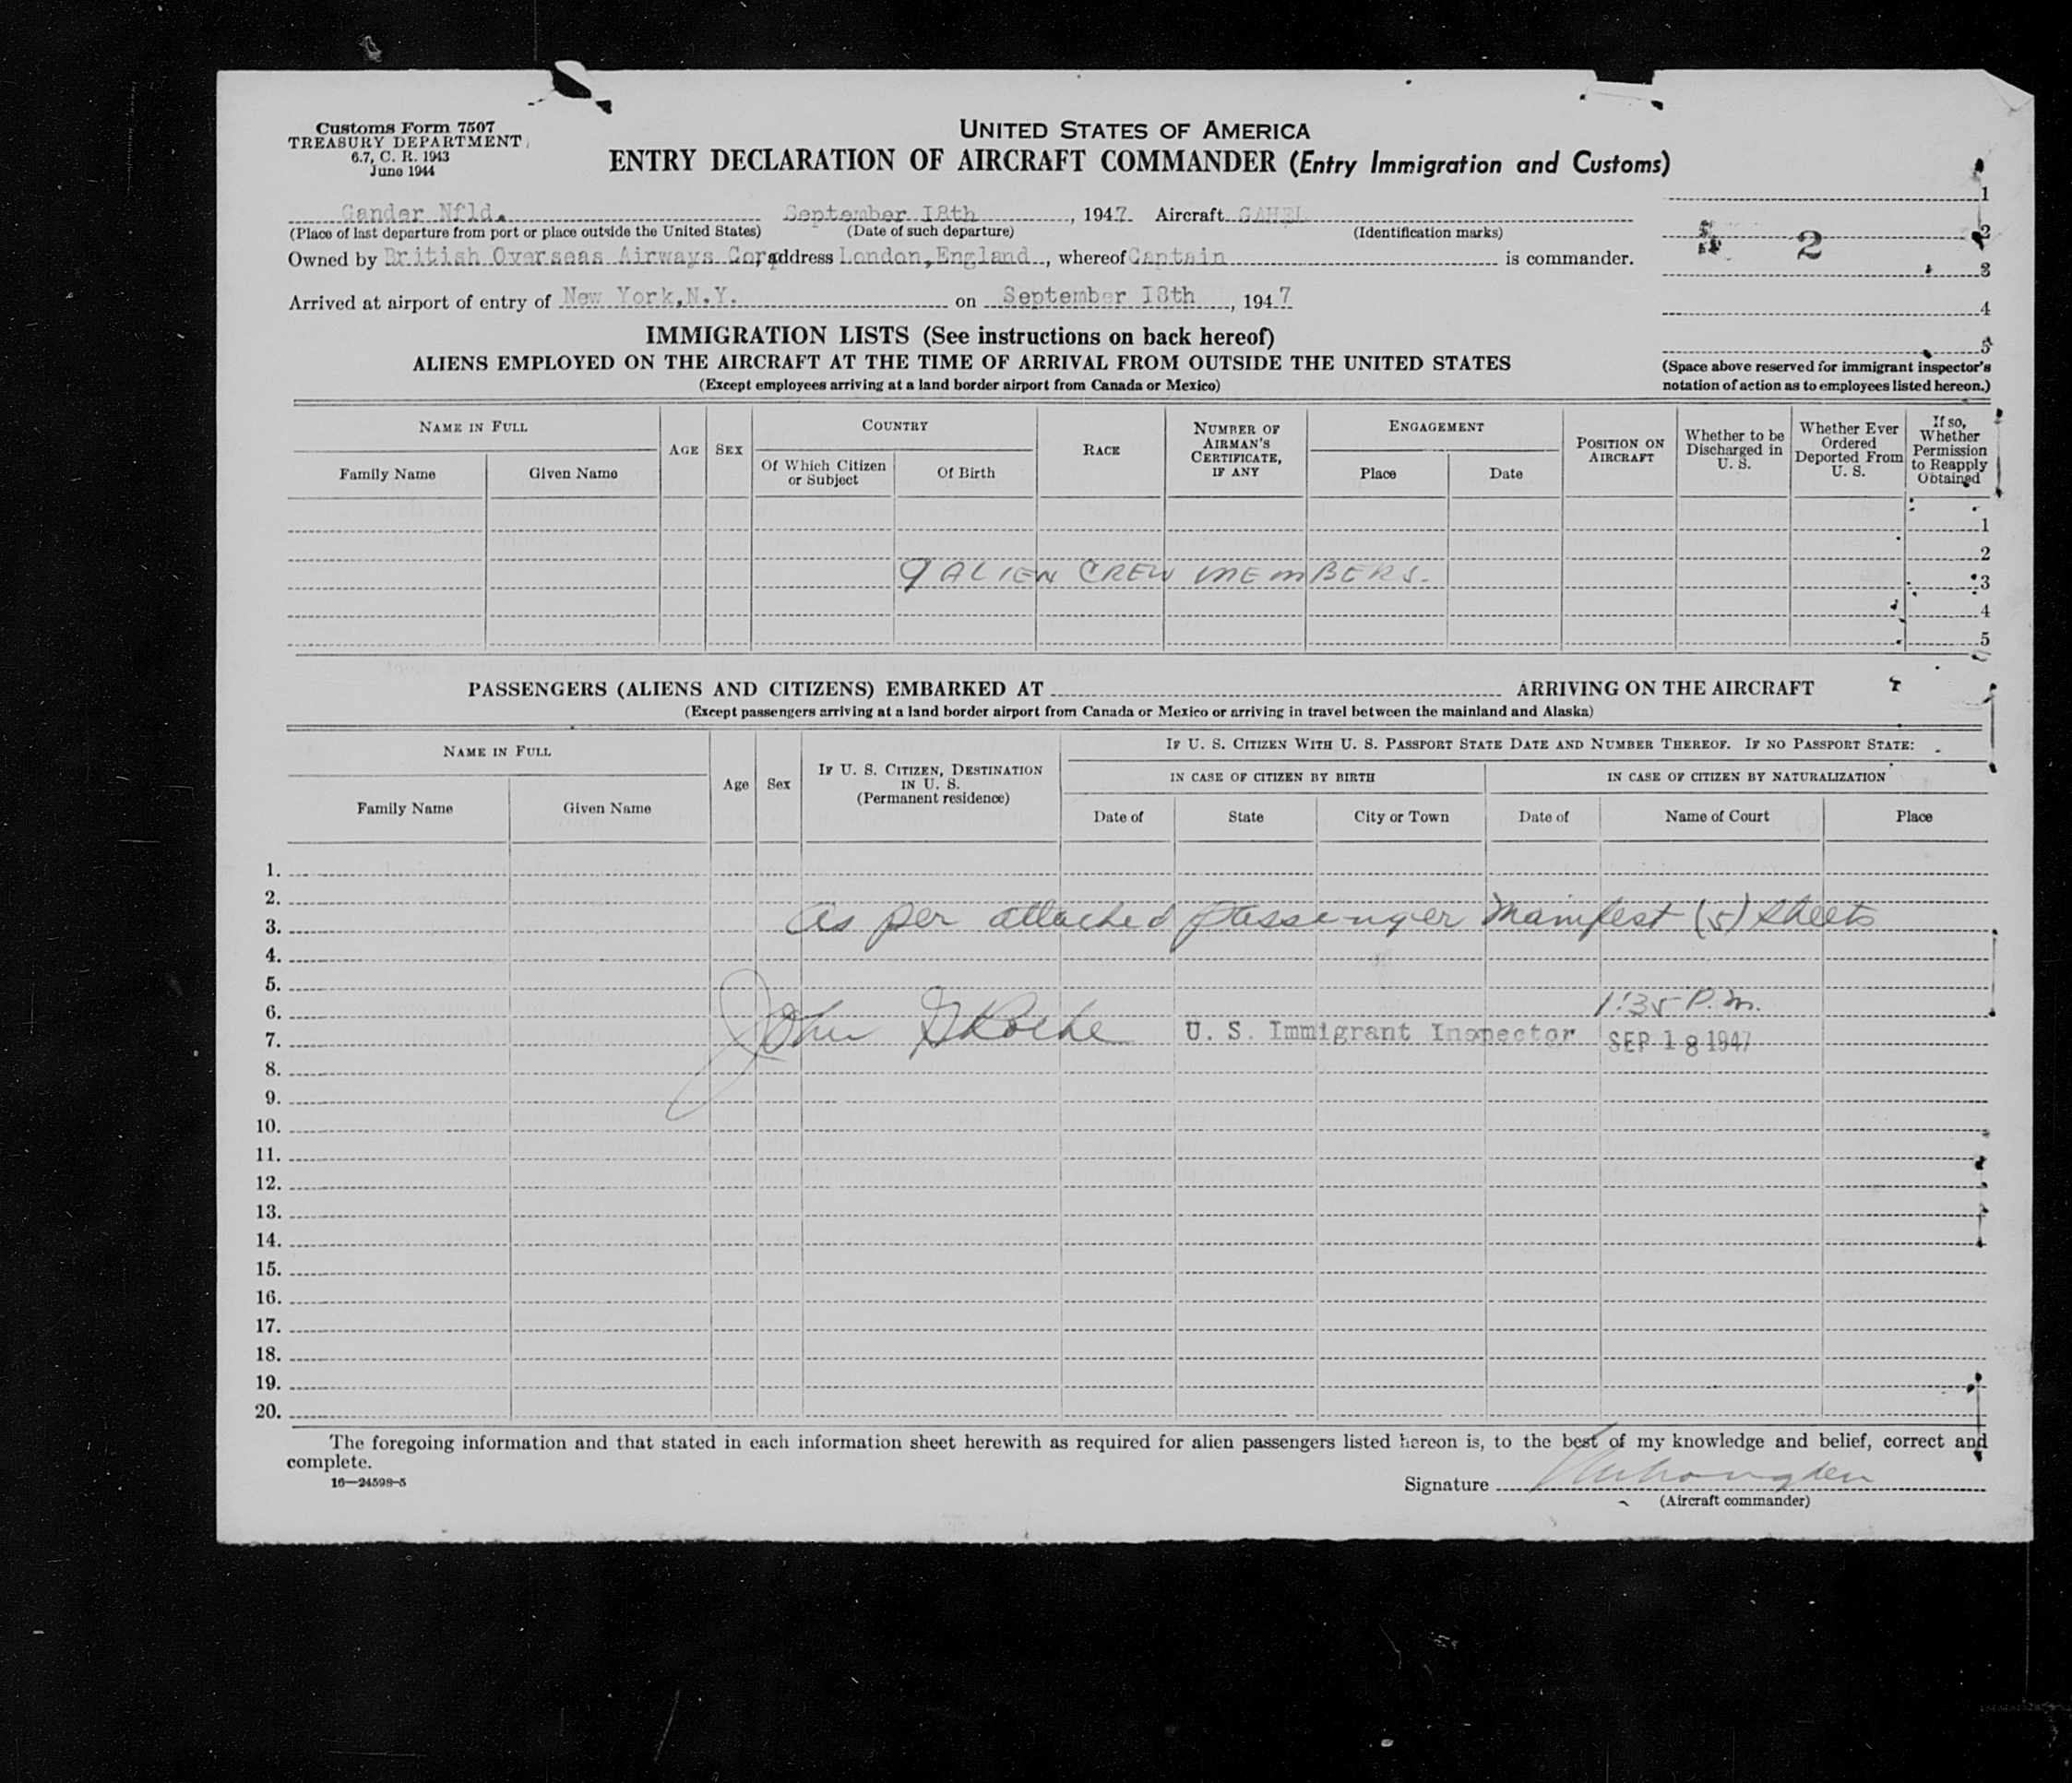 Customs Form 7507
TREASURY DEPARTMENT
6.7, C. R. 1943
June 1944
UNITED STATES OF AMERICA
ENTRY DECLARATION OF AIRCRAFT COMMANDER (Entry Immigration and Customs)
Gander Nfld. September 18th, 1947 Aircraft GAHEL
(Place of last departure from port or place outside the United States) (Date of such departure) (Identification marks)
Owned by British Overseas Airways Corp, address London, England, whereof Captain is commander.
Arrived at airport of entry of New York, N.Y. on September 18th, 1947
1
2 2
3
4
5
(Space above reserved for immigrant inspector's
notation of action as to employees listed hereon.)
IMMIGRATION LISTS (See instructions on back hereof)
ALIENS EMPLOYED ON THE AIRCRAFT AT THE TIME OF ARRIVAL FROM OUTSIDE THE UNITED STATES
(Except employees arriving at a land border airport from Canada or Mexico)
NAME IN FULL
Family Name
Given Name
AGE
SEX
COUNTRY
Of Which Citizen
or Subject
Of Birth
RACE
NUMBER OF
AIRMAN'S
CERTIFICATE,
IF ANY
ENGAGEMENT
Place
Date
POSITION ON
AIRCRAFT
Whether to be
Discharged in
U. S.
Whether Ever
Ordered
Deported From
U. S.
If so,
Whether
Permission
to Reapply
Obtained
1
2
9 ALIEN CREW MEMBERS. 3
4
5
PASSENGERS (ALIENS AND CITIZENS) EMBARKED AT ARRIVING ON THE AIRCRAFT
(Except passengers arriving at a land border airport from Canada or Mexico or arriving in travel between the mainland and Alaska)
NAME IN FULL
Family Name
Given Name
Age
Sex
IF U. S. CITIZEN, DESTINATION
IN U. S.
(Permanent residence)
IF U. S. CITIZEN WITH U. S. PASSPORT STATE DATE AND NUMBER THEREOF. IF NO PASSPORT STATE:
IN CASE OF CITIZEN BY BIRTH
IN CASE OF CITIZEN BY NATURALIZATION
Date of
State
City or Town
Date of
Name of Court
Place
1.
2.
3. As per attached passenger manifest (5) sheets
4.
5.
6. 1:35 P.M.
7. John Roche U. S. Immigrant Inspector SEP 18 1947
8.
9.
10.
11.
12.
13.
14.
15.
16.
17.
18.
19.
20.
The foregoing information and that stated in each information sheet herewith as required for alien passengers listed hereon is, to the best of my knowledge and belief, correct and
complete.
16—24598-5
Signature
(Aircraft commander)